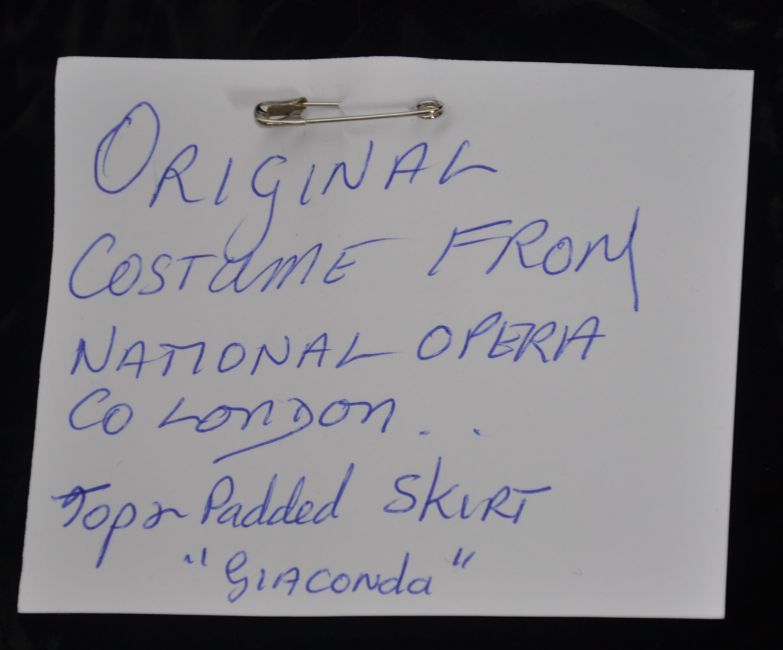 ORIGINAL
COSTUME FROM
NATIONAL OPERA
CO LONDON..
Top & Padded SKIRT
"GIACONDA"